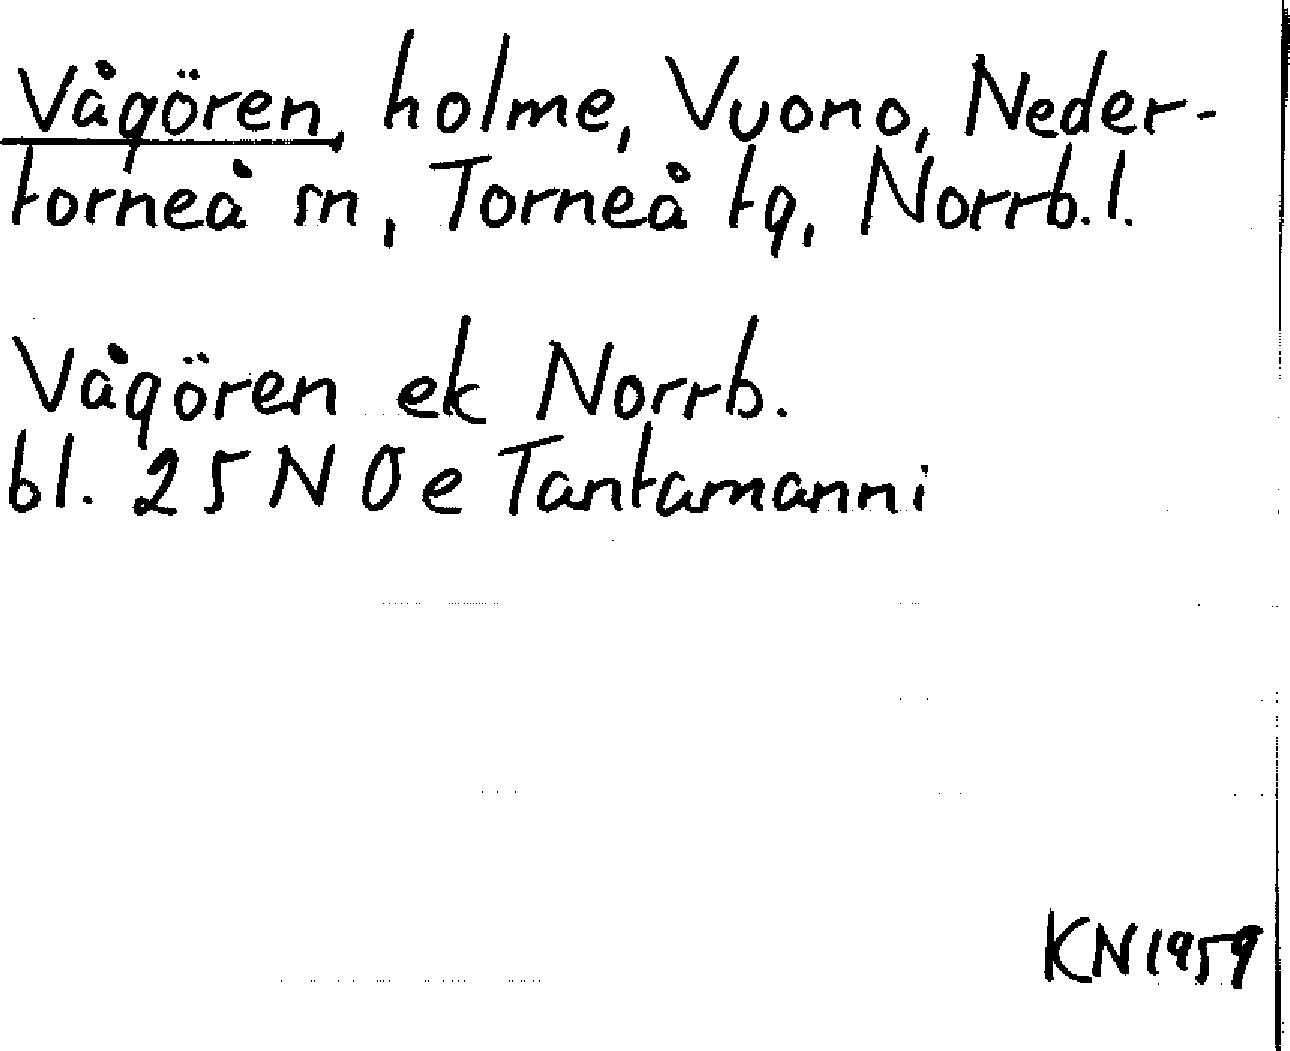 Vågören, holme, Vuono, Neder-
torneå sn, Torneå tg, Norrb.l.
Vågören ek Norrb.
bl. 25 N O e Tantamanni
KN 1959